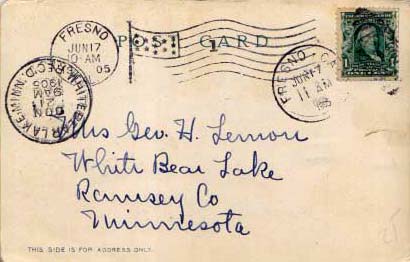 POST CARD
FRESNO
JUN 17
10-AM
05
1
FRESNO
JUN 17
11 AM
WHITE BEAR LAKE, MINN. REC'D.
JUN
21
9AM
1905
1
Mrs Geo. H. Lemon
White Bear Lake
Ramsey Co
Minnesota
THIS SIDE IS FOR ADDRESS ONLY.